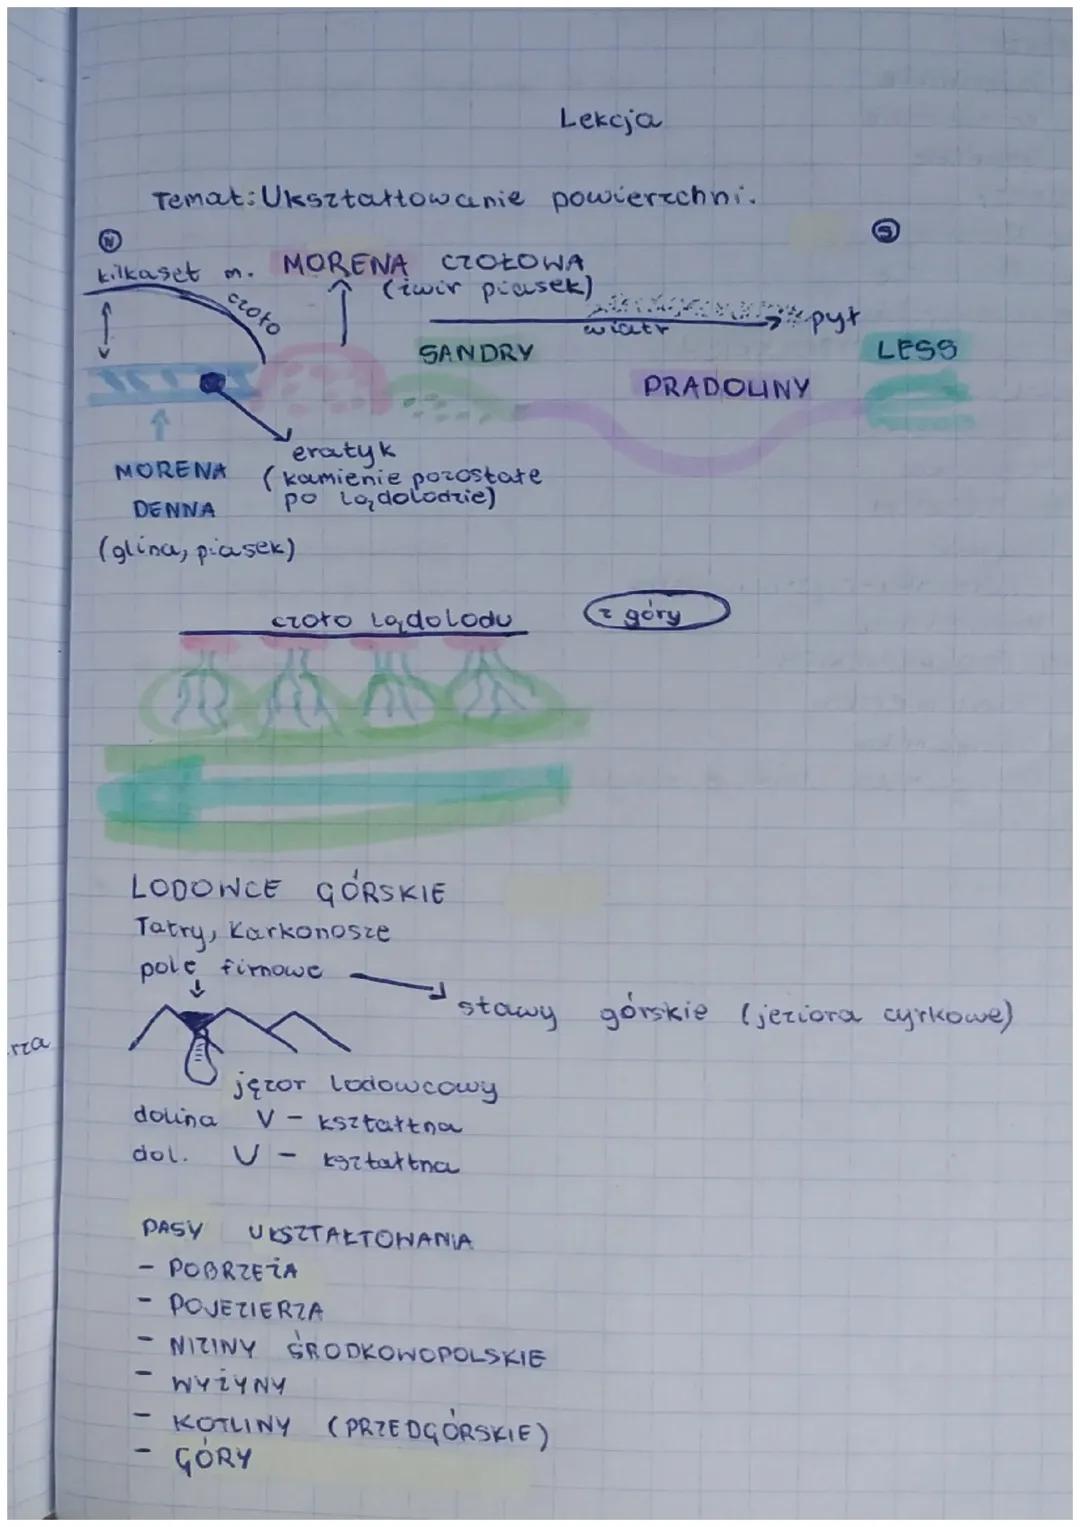 Lekcja
Temat: Ukształtowanie powierzchni.
N
S
kilkaset m.
MORENA CZOŁOWA
(żwir piasek)
czoło
wiatr
pył
SANDRY
LESS
PRADOLINY
eratyk
(kamienie pozostałe
po lądolodzie)
MORENA
DENNA
(glina, piasek)
czoło lądolodu
z góry
LODOWCE GÓRSKIE
Tatry, Karkonosze
pole firnowe
stawy górskie (jeziora cyrkowe)
rza
język lodowcowy
dolina V - kształtna
dol. U - kształtna
PASY UKSZTAŁTOWANIA
- POBRZEŻA
- POJEZIERZA
- NIZINY ŚRODKOWOPOLSKIE
- WYŻYNY
- KOTLINY (PRZEDGÓRSKIE)
- GÓRY